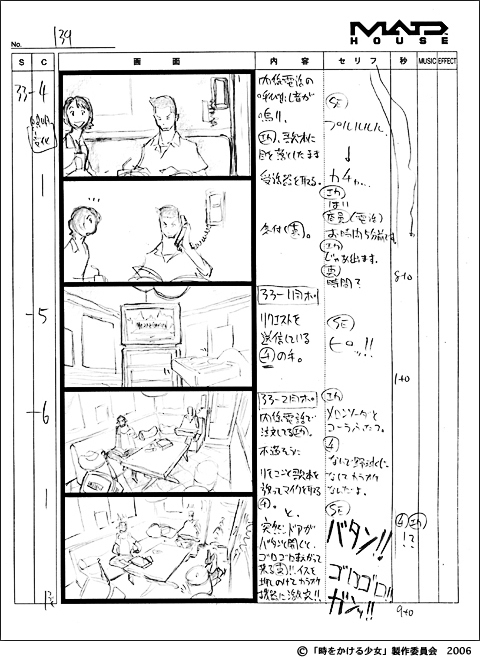 MADHOUSE
No. 139
S C 画面 内容 セリフ 秒 MUSIC EFFECT
33-4
内線電話の
呼び出し音が
鳴り、
目を落としたまま
受話器を取る。
SE
プルルルル。
↓
カチャ…
はい
店員(電話)
お時間5分前です。
じゃあ出ます。
時間?
8+0
5
33-1同ポ
リクエストを
送信している
の手。
SE
ピロッ!!
1+0
6
33-2同ポ
内線電話で
注文してる
メロンソーダと
コーラふたつ。
なんで野球に
なんでカラオケ
なんだよ。
リモコンと歌本を
放ってマイクを取る
と、
突然、ドアが
バタンと開くと、
ゴロゴロまわって
来る
イスを
カラオケ
機器に激突!!
SE
バタン!!
ゴロゴロ!!
ガシッ!!
!?
9+0
©「時をかける少女」製作委員会 2006